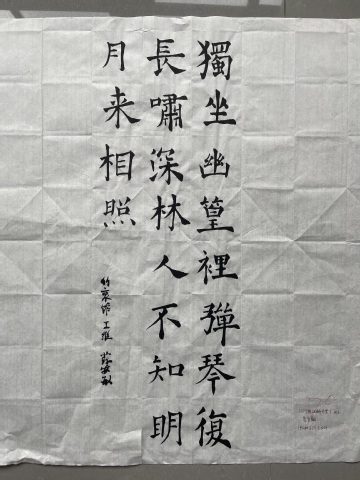 獨坐幽篁裡彈琴復
長嘯深林人不知明
月来相照